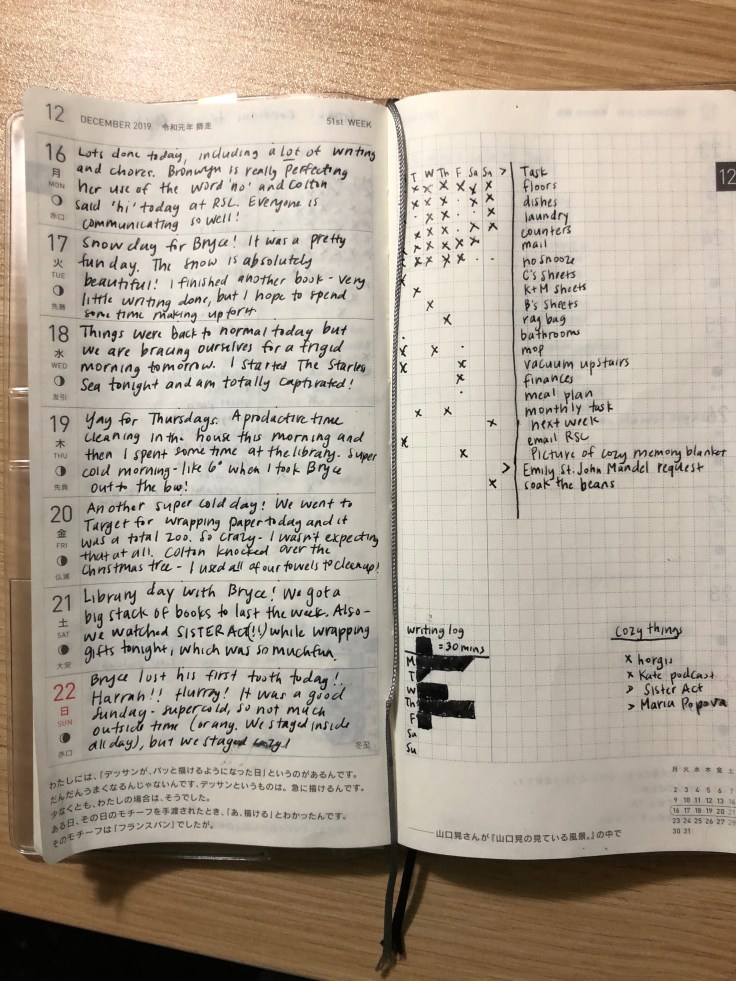 12 DECEMBER 2019 令和元年 師走 51st WEEK
16
月
MON
赤口
Lots done today, including a lot of writing
and chores. Bronwyn is really perfecting
her use of the word 'no' and Colton
said 'hi' today at RSL. Everyone is
communicating so well!
17
火
TUE
先勝
Snow day for Bryce! It was a pretty
fun day. The snow is absolutely
beautiful! I finished another book - very
little writing done, but I hope to spend
some time making up for it
18
水
WED
友引
Things were back to normal today but
we are bracing ourselves for a frigid
morning tomorrow. I started The Starless
Sea tonight and am totally captivated!
19
木
THU
先負
Yay for Thursdays. A productive time
cleaning in the house this morning and
then I spent some time at the library. Super
cold morning - like 6° when I took Bryce
out to the bus!
20
金
FRI
仏滅
Another super cold day! We went to
Target for wrapping paper today and it
was a total zoo. So crazy - I wasn't expecting
that at all. Colton knocked over the
Christmas tree - I used all of our towels to clean up!
21
土
SAT
大安
Library day with Bryce! We got a
big stack of books to last the week. Also -
we watched SISTER Act (!!) while wrapping
gifts tonight, which was so much fun.
22
日
SUN
赤口
Bryce lost his first tooth today!
Harrah!! Hurray! It was a good
Sunday - super cold, so not much
outside time (or any. We stayed inside
all day), but we stayed cozy!
冬至
わたしには、「デッサンが、パッと描けるようになった日」というのがあるんです。
だんだんうまくなるんじゃないんです、デッサンというものは。急に描けるんです。
少なくとも、わたしの場合は、そうでした。
ある日、その日のモチーフを手渡されたとき、「あ、描ける」とわかったんです。
そのモチーフは「フランスパン」でしたが。
T W Th F Sa Su > Task
floors
dishes
laundry
counters
mail
no snooze
C's sheets
K+M sheets
B's sheets
rag bag
bathrooms
mop
vacuum upstairs
finances
meal plan
monthly task
next week
email RSL
Picture of cozy memory blanket
> Emily St. John Mandel request
soak the beans
12
writing log
= 30 mins
M
T
W
Th
F
Sa
Su
cozy things
x
x Kate podcast
> Sister Act
> Maria Popova
月 火 水 木 金 土
2 3 4 5 6 7
9 10 11 12 13 14
16 17 18 19 20 21
23 24 25 26 27 28
30 31
——山口晃さんが『山口晃の見ている風景。』の中で